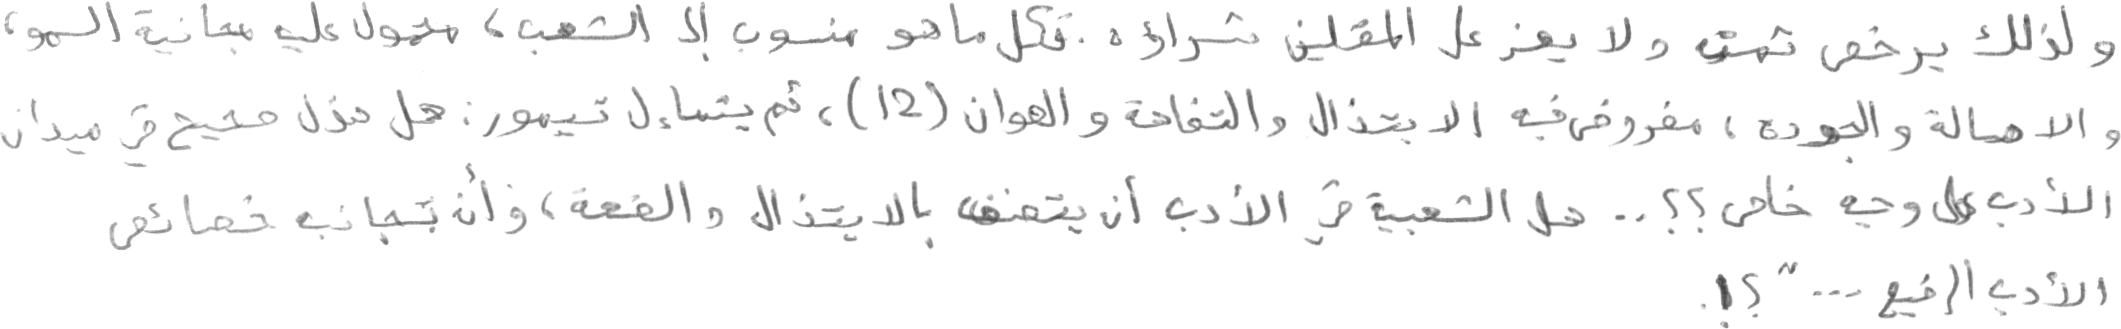 ولذلك يرخص ثمنه ولا يعز على المقلين شراؤه. فكل ما هو منسوب إلى الشعب، محمول عليه مجانبة السمو،
والاصالة والجوده، مفروض فيه الابتذال والتفاهة والهوان (12)، ثم يتساءل تيمور: هل هذا صحيح في ميدان
الأدب على وجه خاص؟؟.. هل الشعبية في الأدب أن يتصف بالابتذال والضعة، وأن تجانب خصائص
الأدب الرفيع ..."؟!.